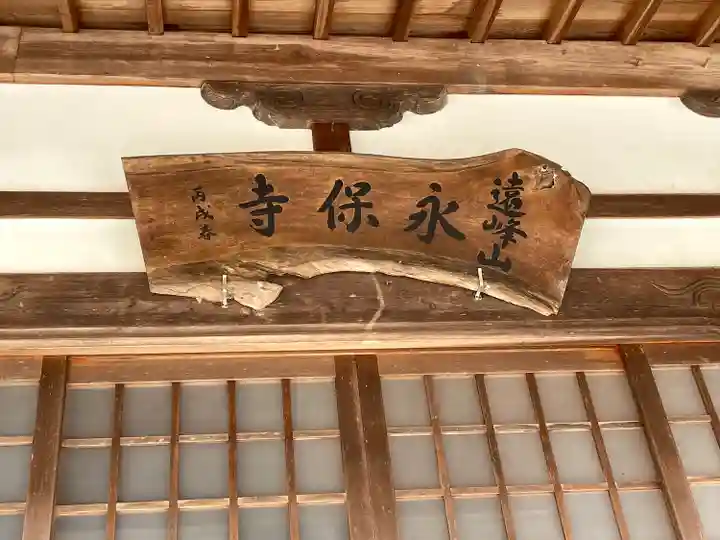 遠峰山
永保寺
丙戌春